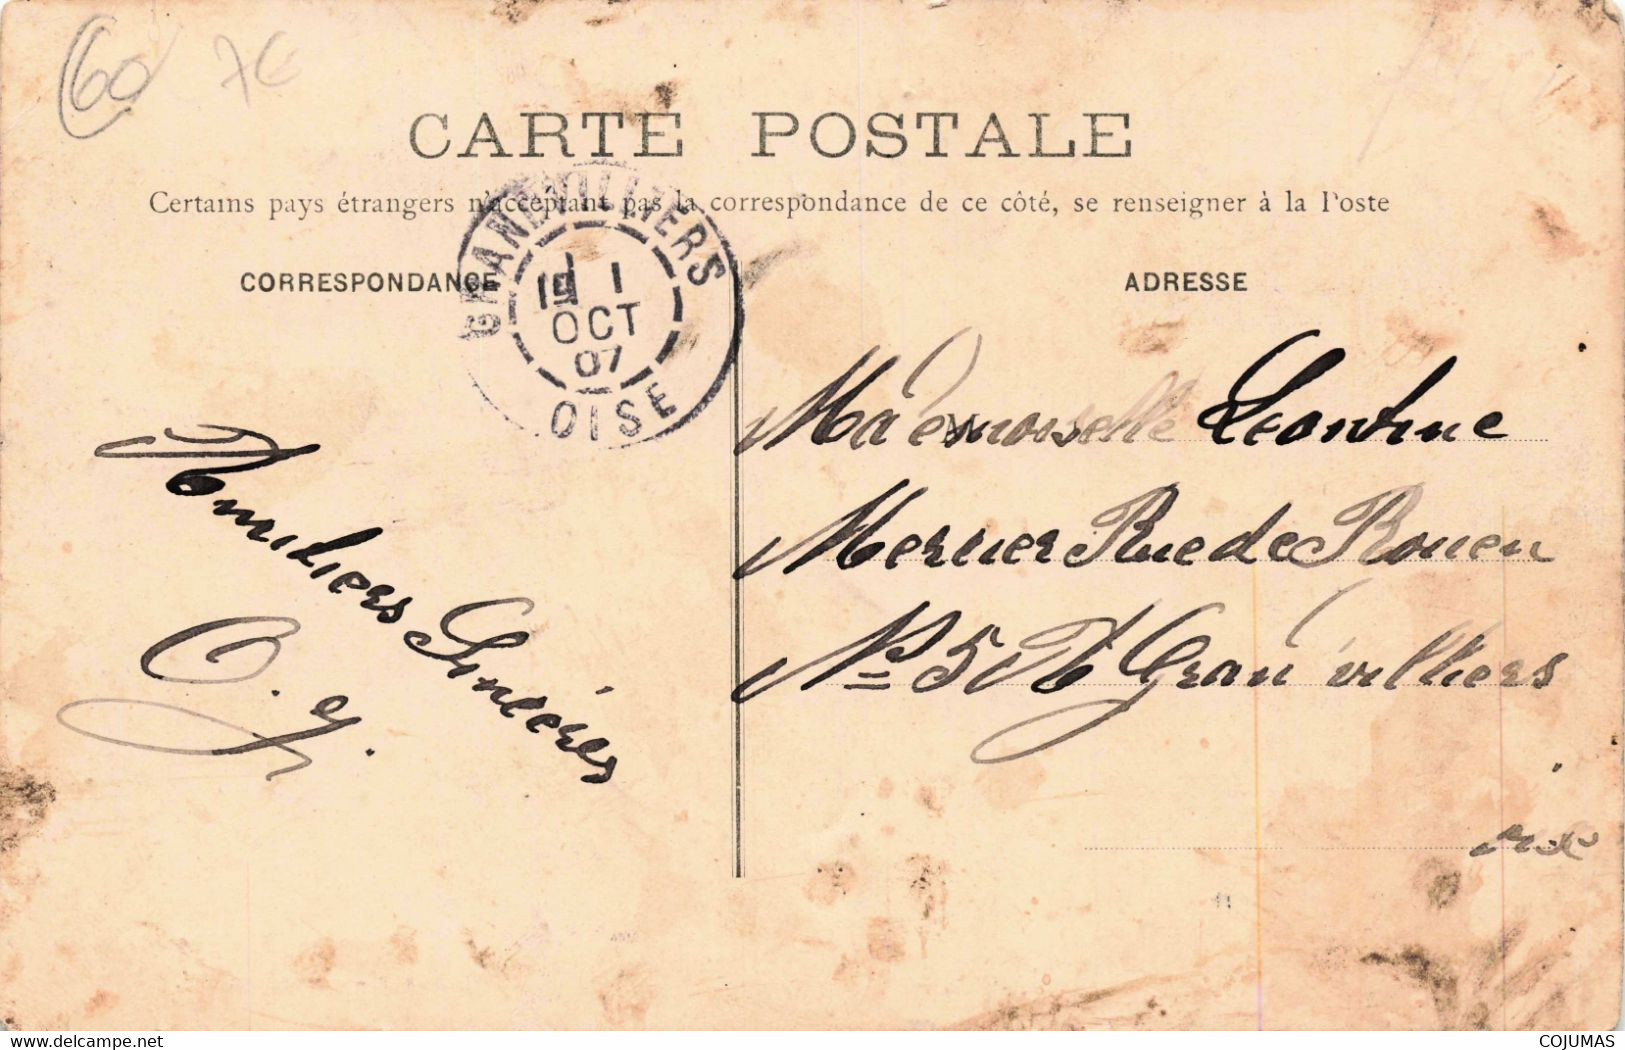 60 7€
CARTE POSTALE
Certains pays étrangers n'acceptant pas la correspondance de ce côté, se renseigner à la Poste
CORRESPONDANCE
ADRESSE
GRANDVILLIERS
1
OCT
07
OISE
Mademoiselle Léontine
Mercier Rue de Rouen
N° 50 Grandvilliers
oise
Amitiers Sincères
O. G.
www.delcampe.net
COJUMAS